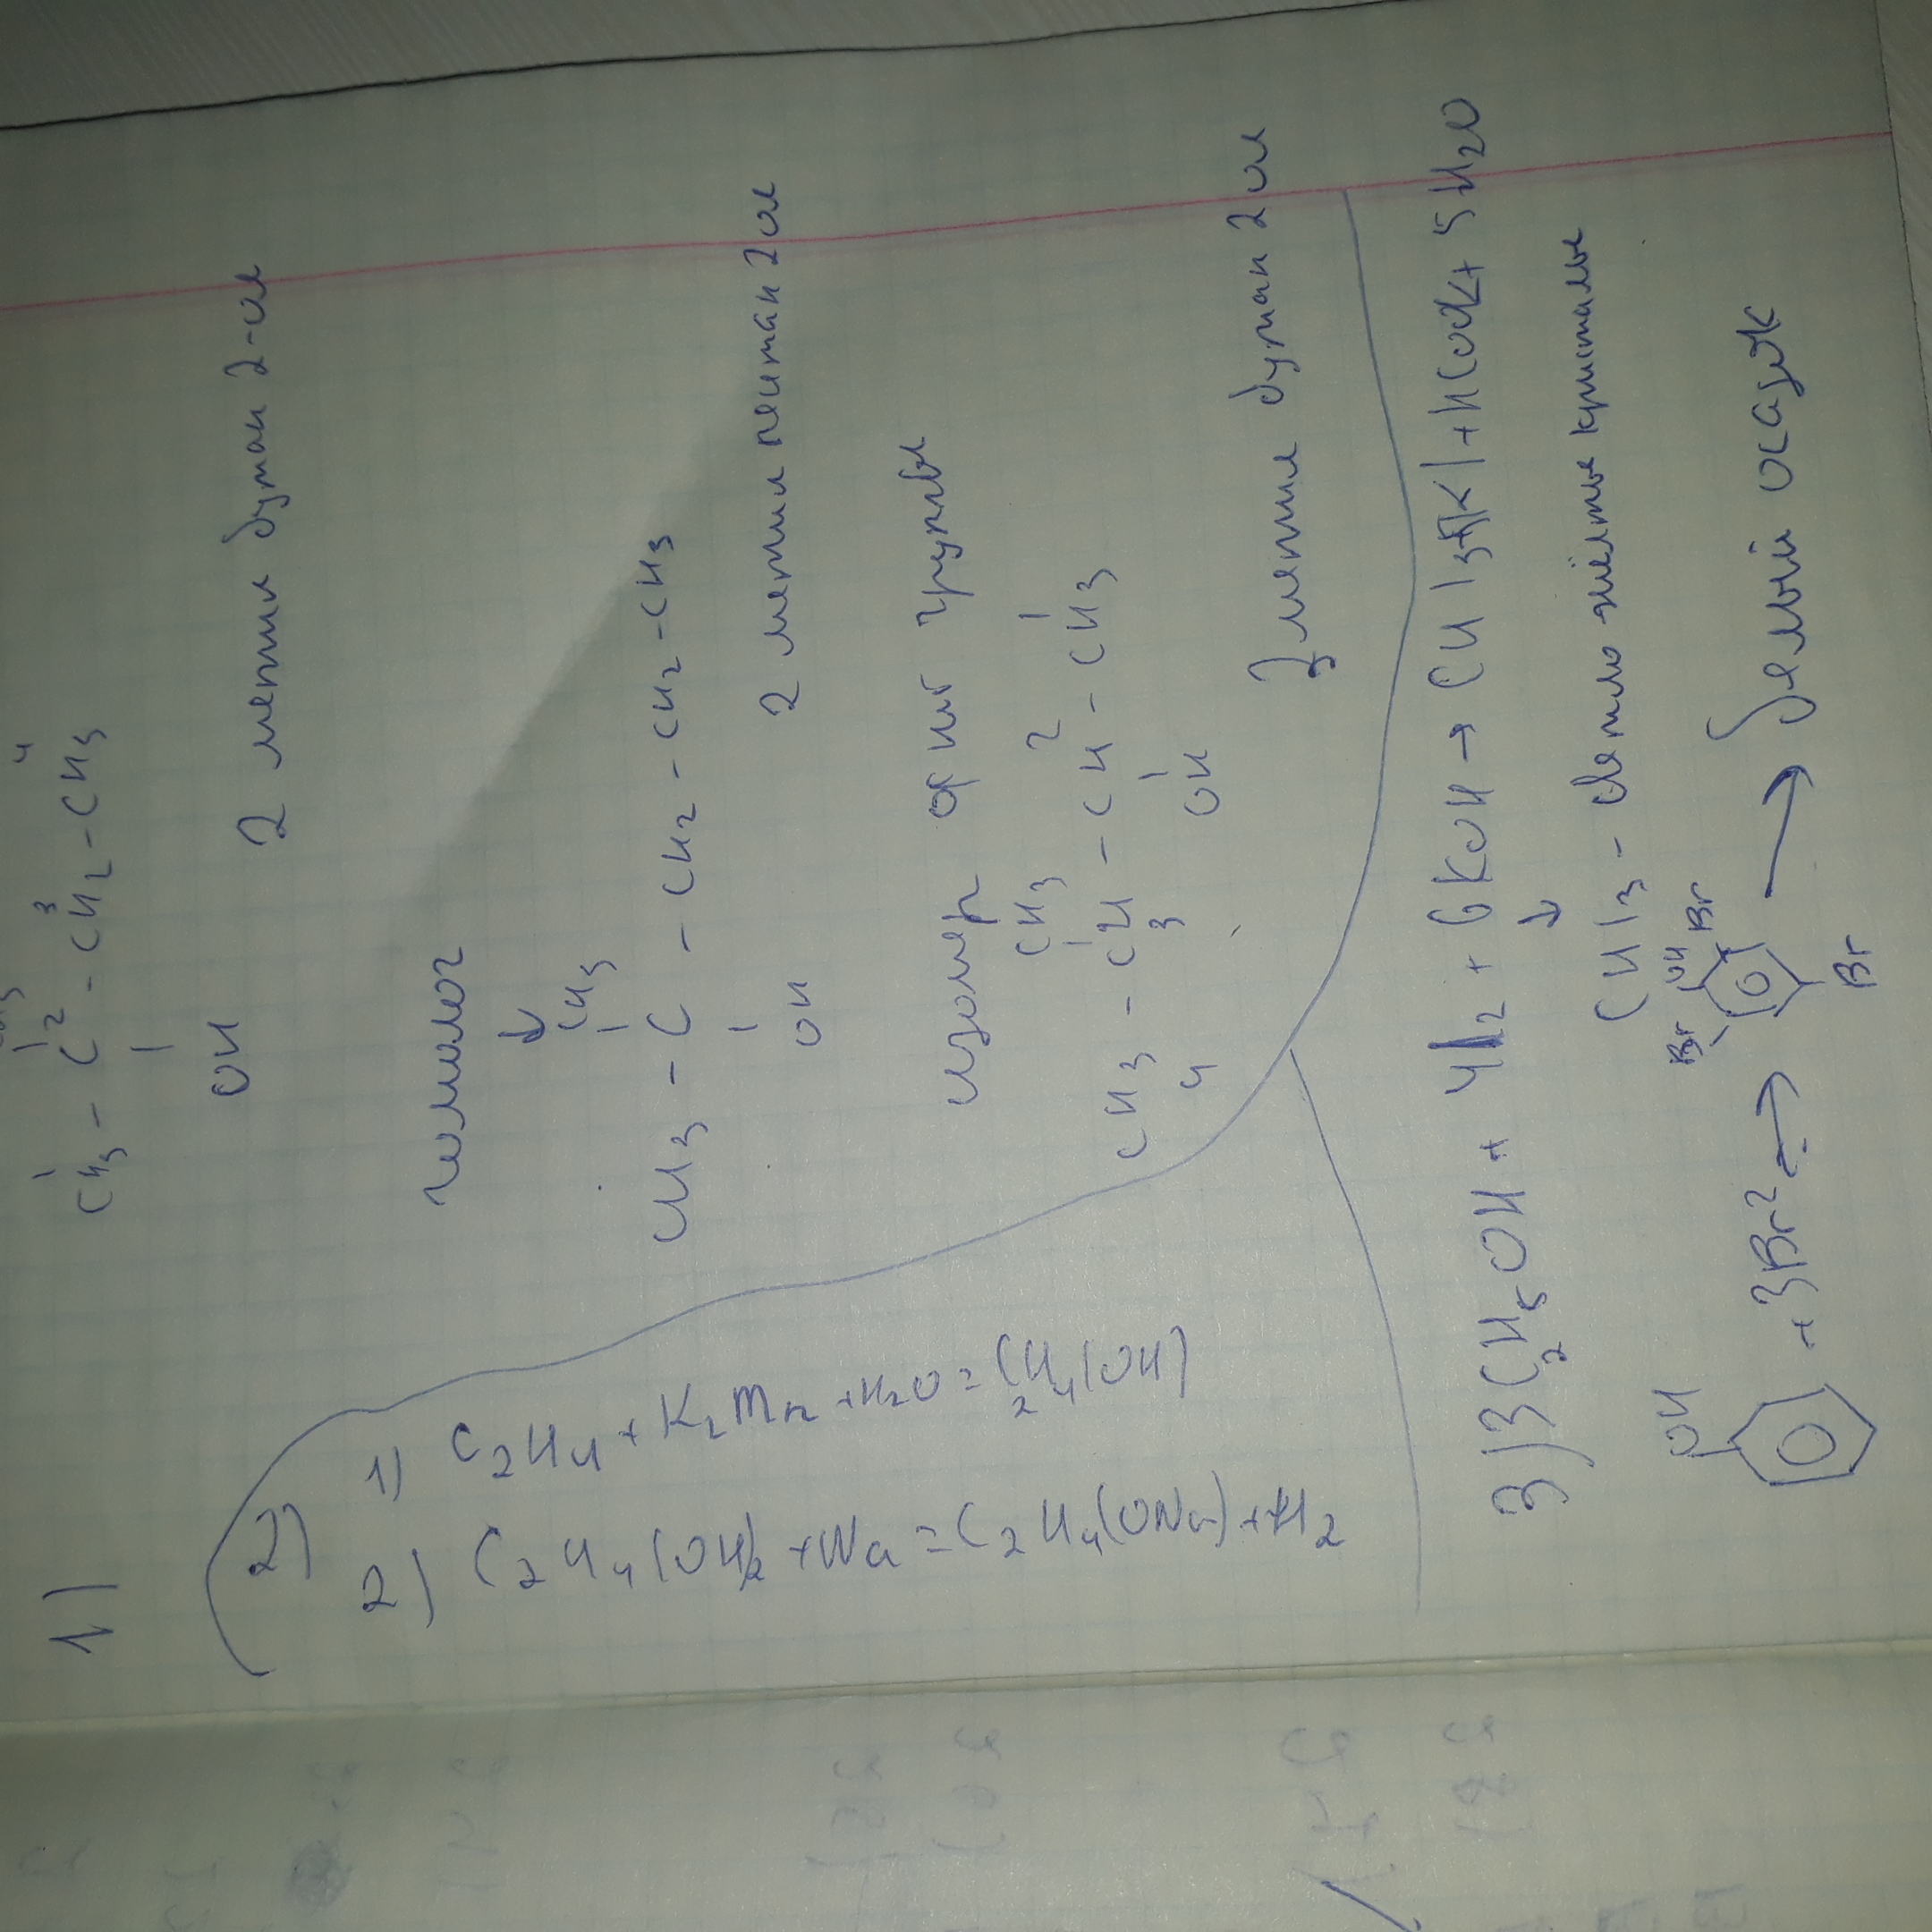 1)
CH3 - C - CH2 - CH3
1 2 3 4
OH
2 метил бутан 2-ол
гомолог
↓
CH3
CH3 - C - CH2 - CH2 - CH3
OH
2 метил пентан 2 ол
изомер
группы
CH3 2 1
CH3 - CH - CH - CH3
4 3 OH
3 метил бутан 2 ол
2)
1) C2H4 + K2Mn + H2O = C2H4(OH)
2) C2H4(OH)2 + Na = C2H4(ONa) + H2
3) C2H5OH + 4I2 + 6KOH → CHI3 + 5KI + HCOOK + 5H2O
↓
CHI3 - светло жёлтые кристаллы
OH + 3Br2 → Br OH Br Br → белый осадок